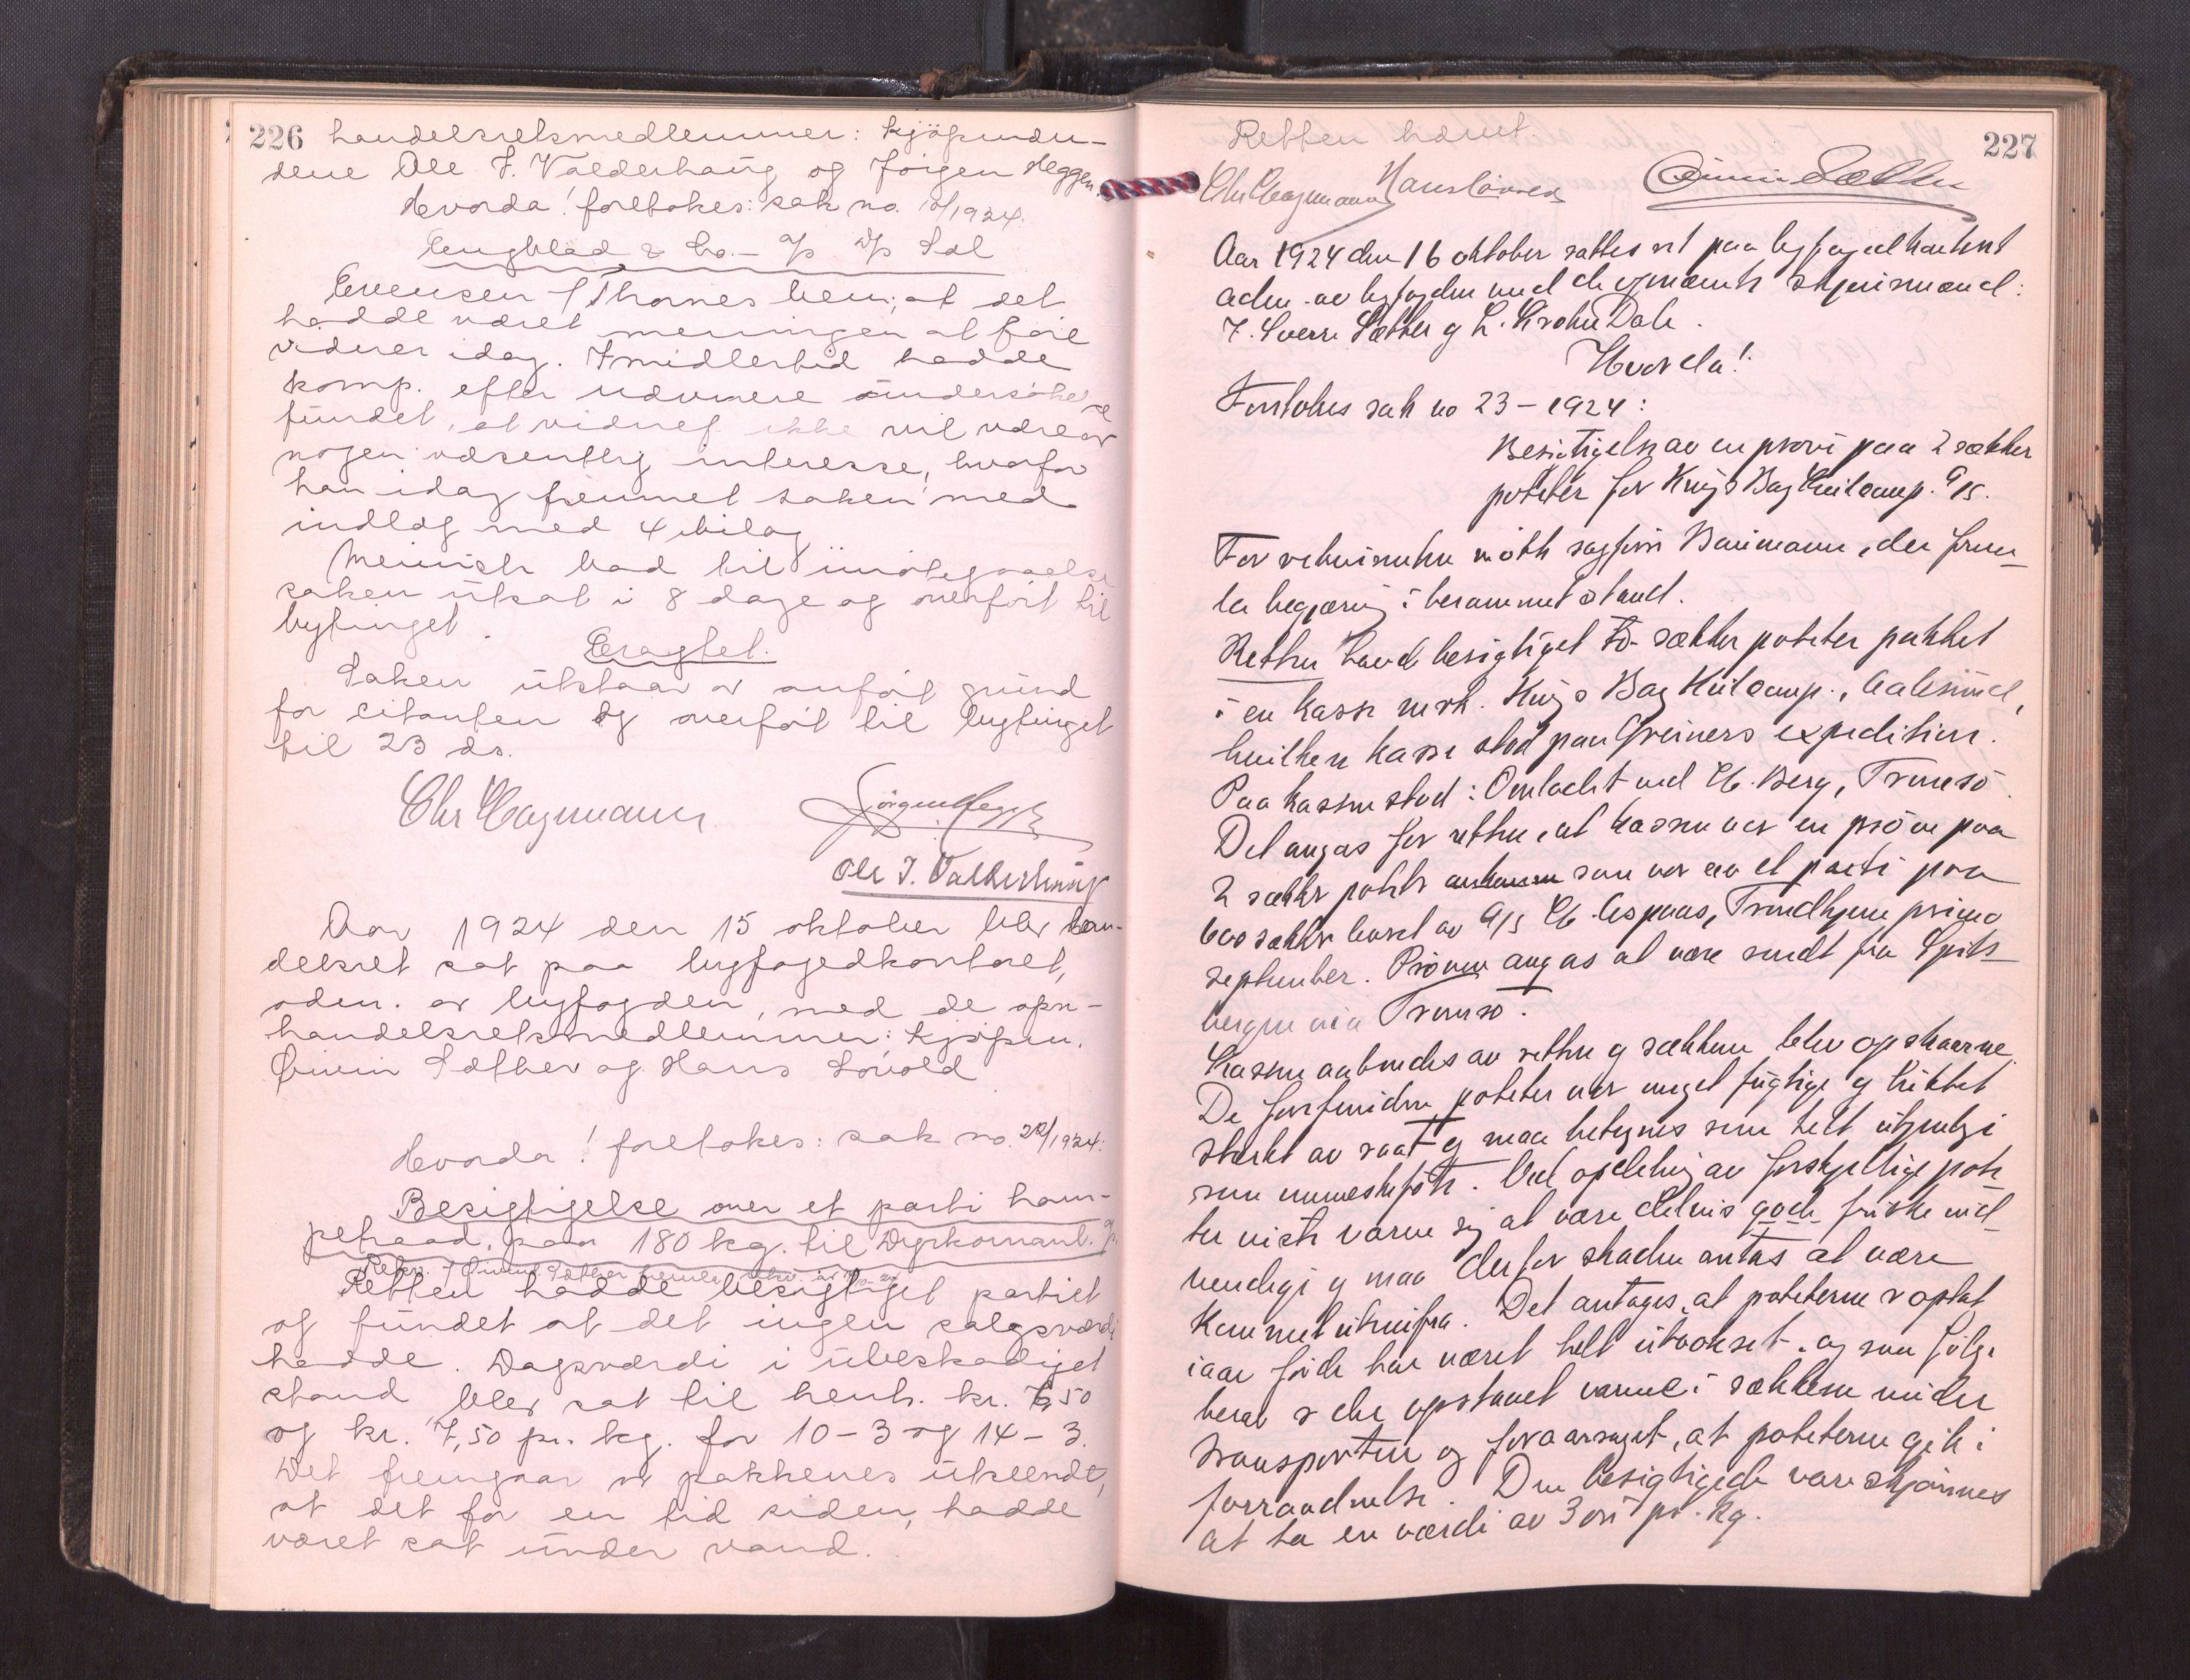 226 handelsretsmedlemmer: kjöpmæn-
dene Ole J. Valderhaug og Jörgen Hegge.
Hvorda! foretokes: sak no. /1924.
Engblad & Co. - A/S D/S Sol
Evensen f Thornes bem. at det
hadde været meningen at före
vidner idag. Imidlertid hadde
komp. efter nærmere undersökelse
fundet, at vidnef. ikke vil være av
nogen væsentlig interesse, hvorfor
han idag fremmet saken med
indlæg med 4 bilag
Meinich bad til imötegaaelse
saken utsat i 8 dage og overfört til
bytinget.
Eragtet.
Saken utstaar av anfört grund
for citanten og overfört til bytinget
til 23 ds.
Chr Hagemann Jörgen Hegge
Ole J. Valderhaug
Aar 1924 den 15 oktober blev han-
delsret sat paa byfogedkontoret,
adm. av byfogden, med de opn-
handelsretsmedlemmer: kjöpm.
Öivin Sæther og Hans Lövold
Hvorda! foretokes: sak no. 22/1924.
Besigtigelse over et parti ham-
petraad, paa 180 kg. til Dyrkornant. A/S
Retten hadde besigtiget partiet
og fundet at det ingen salgsværdi
hadde. Dagsværdi i ubeskadiget
stand blev sat til henh. kr. 6,50
og kr. 7,50 pr. kg. for 10-3 og 14-3.
Det fremgaar av pakkenes utseendt,
at det for en tid siden, hadde
været sat under vand.
227
Retten hævet.
Chr Hagemann Hans Lövold Öivin Sæther
Aar 1924 den 16 oktober sattes ret paa byfogedkontoret
adm. av byfogden med de opnævnte skjönsmænd:
J. Sverre Sæther og L. Krohn Dale.
Hvorda!
Foretokes sak no 23-1924:
Besigtigelse av en pröve paa 2 sækker
poteter for Kings Bay Kulcomp. A/S.
For rekvirenten mötte sagförer Baumann, der frem-
la begjæring i berammet stand.
Retten havd besigtiget to sækker poteter pakket
i en kasse merk. Kings Bay Kulcomp., Aalesund,
hvilken kasse stod paa Greiners expedition.
Paa kassen stod: Omladet ved Chr. Berg, Tromsö.
Det angas for retten, at kassen var en pröve paa
2 sækker poteter som var av et parti paa
600 sækker levert av A/S Chr. Aspaas, Trondhjem primo
september. Pröven angas at være sendt fra Spits-
bergen via Tromsö.
Kassen aabnedes av retten og sækkene blev opskaarne.
De forefundne poteter var meget fugtige og luktet
sterkt av raat og maa betegnes som helt utjenlig
som menneskeföde. Ved opdeling av forskjellige pote-
ter viste varen sig at være delvis gode friske ind-
vendige og maa derfor skaden antas at være
kommet utenifra. Det antages, at poteterne er optat
iaar förde har været helt utvokset og som fölge
herav er der opstaaet varme i sækkene under
transporten og foraarsaget, at poteterne gik i
forraadnelse. Den besigtigede vare skjönnes
at ha en værdi av 3 öre pr. kg.